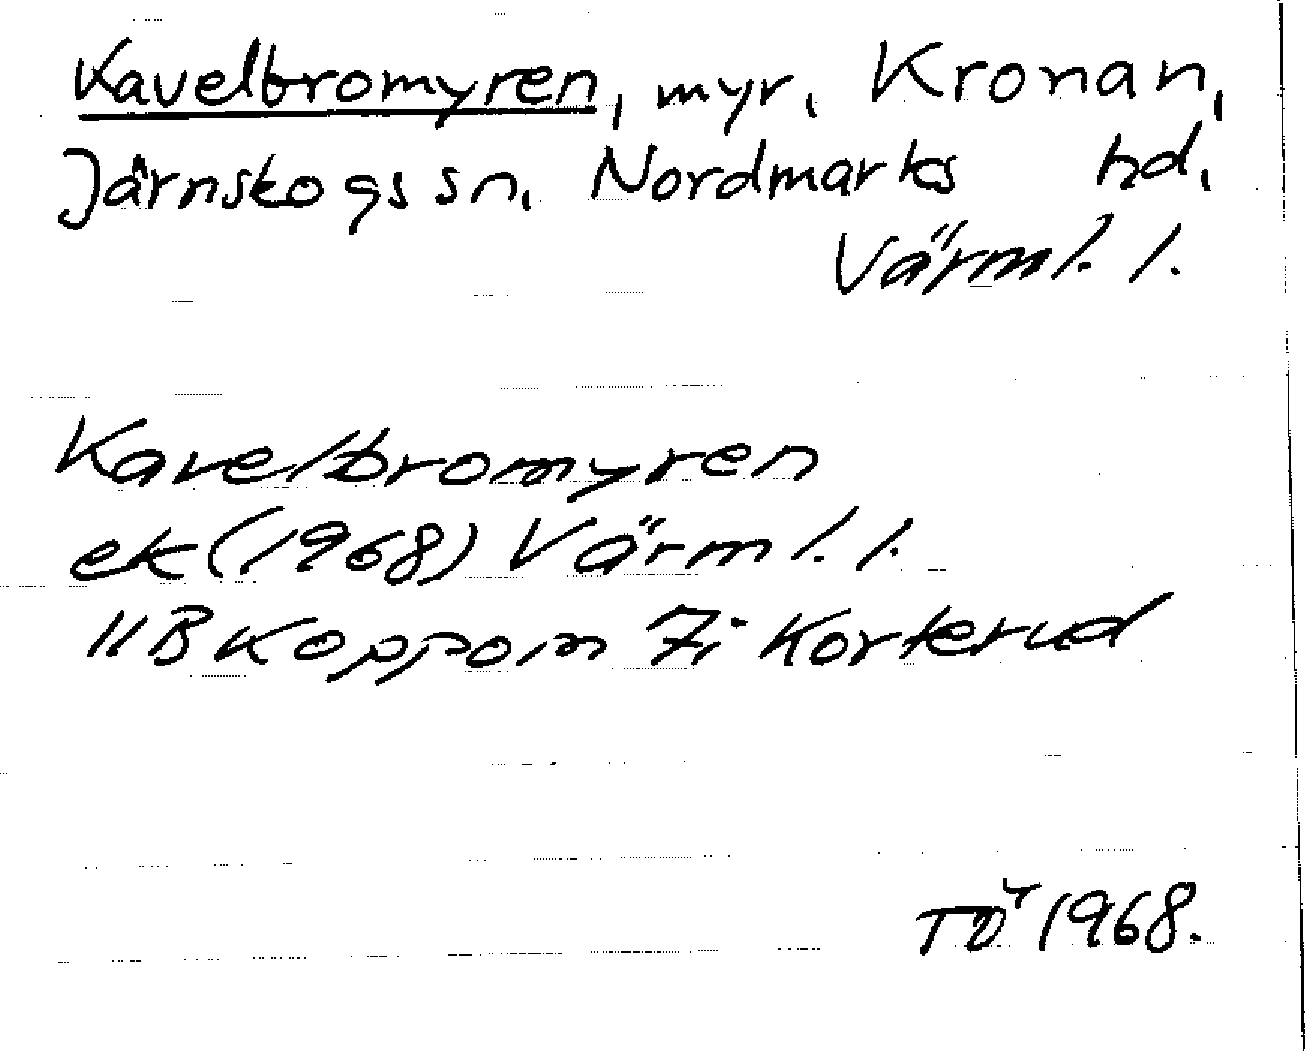 Kavelbromyren, myr, Kronan,
Järnskogs sn, Nordmarks hd,
Värml. l.
Kavelbromyren
ek (1968) Värml. l.
11B Koppom 7i Korterud
TÖ 1968.